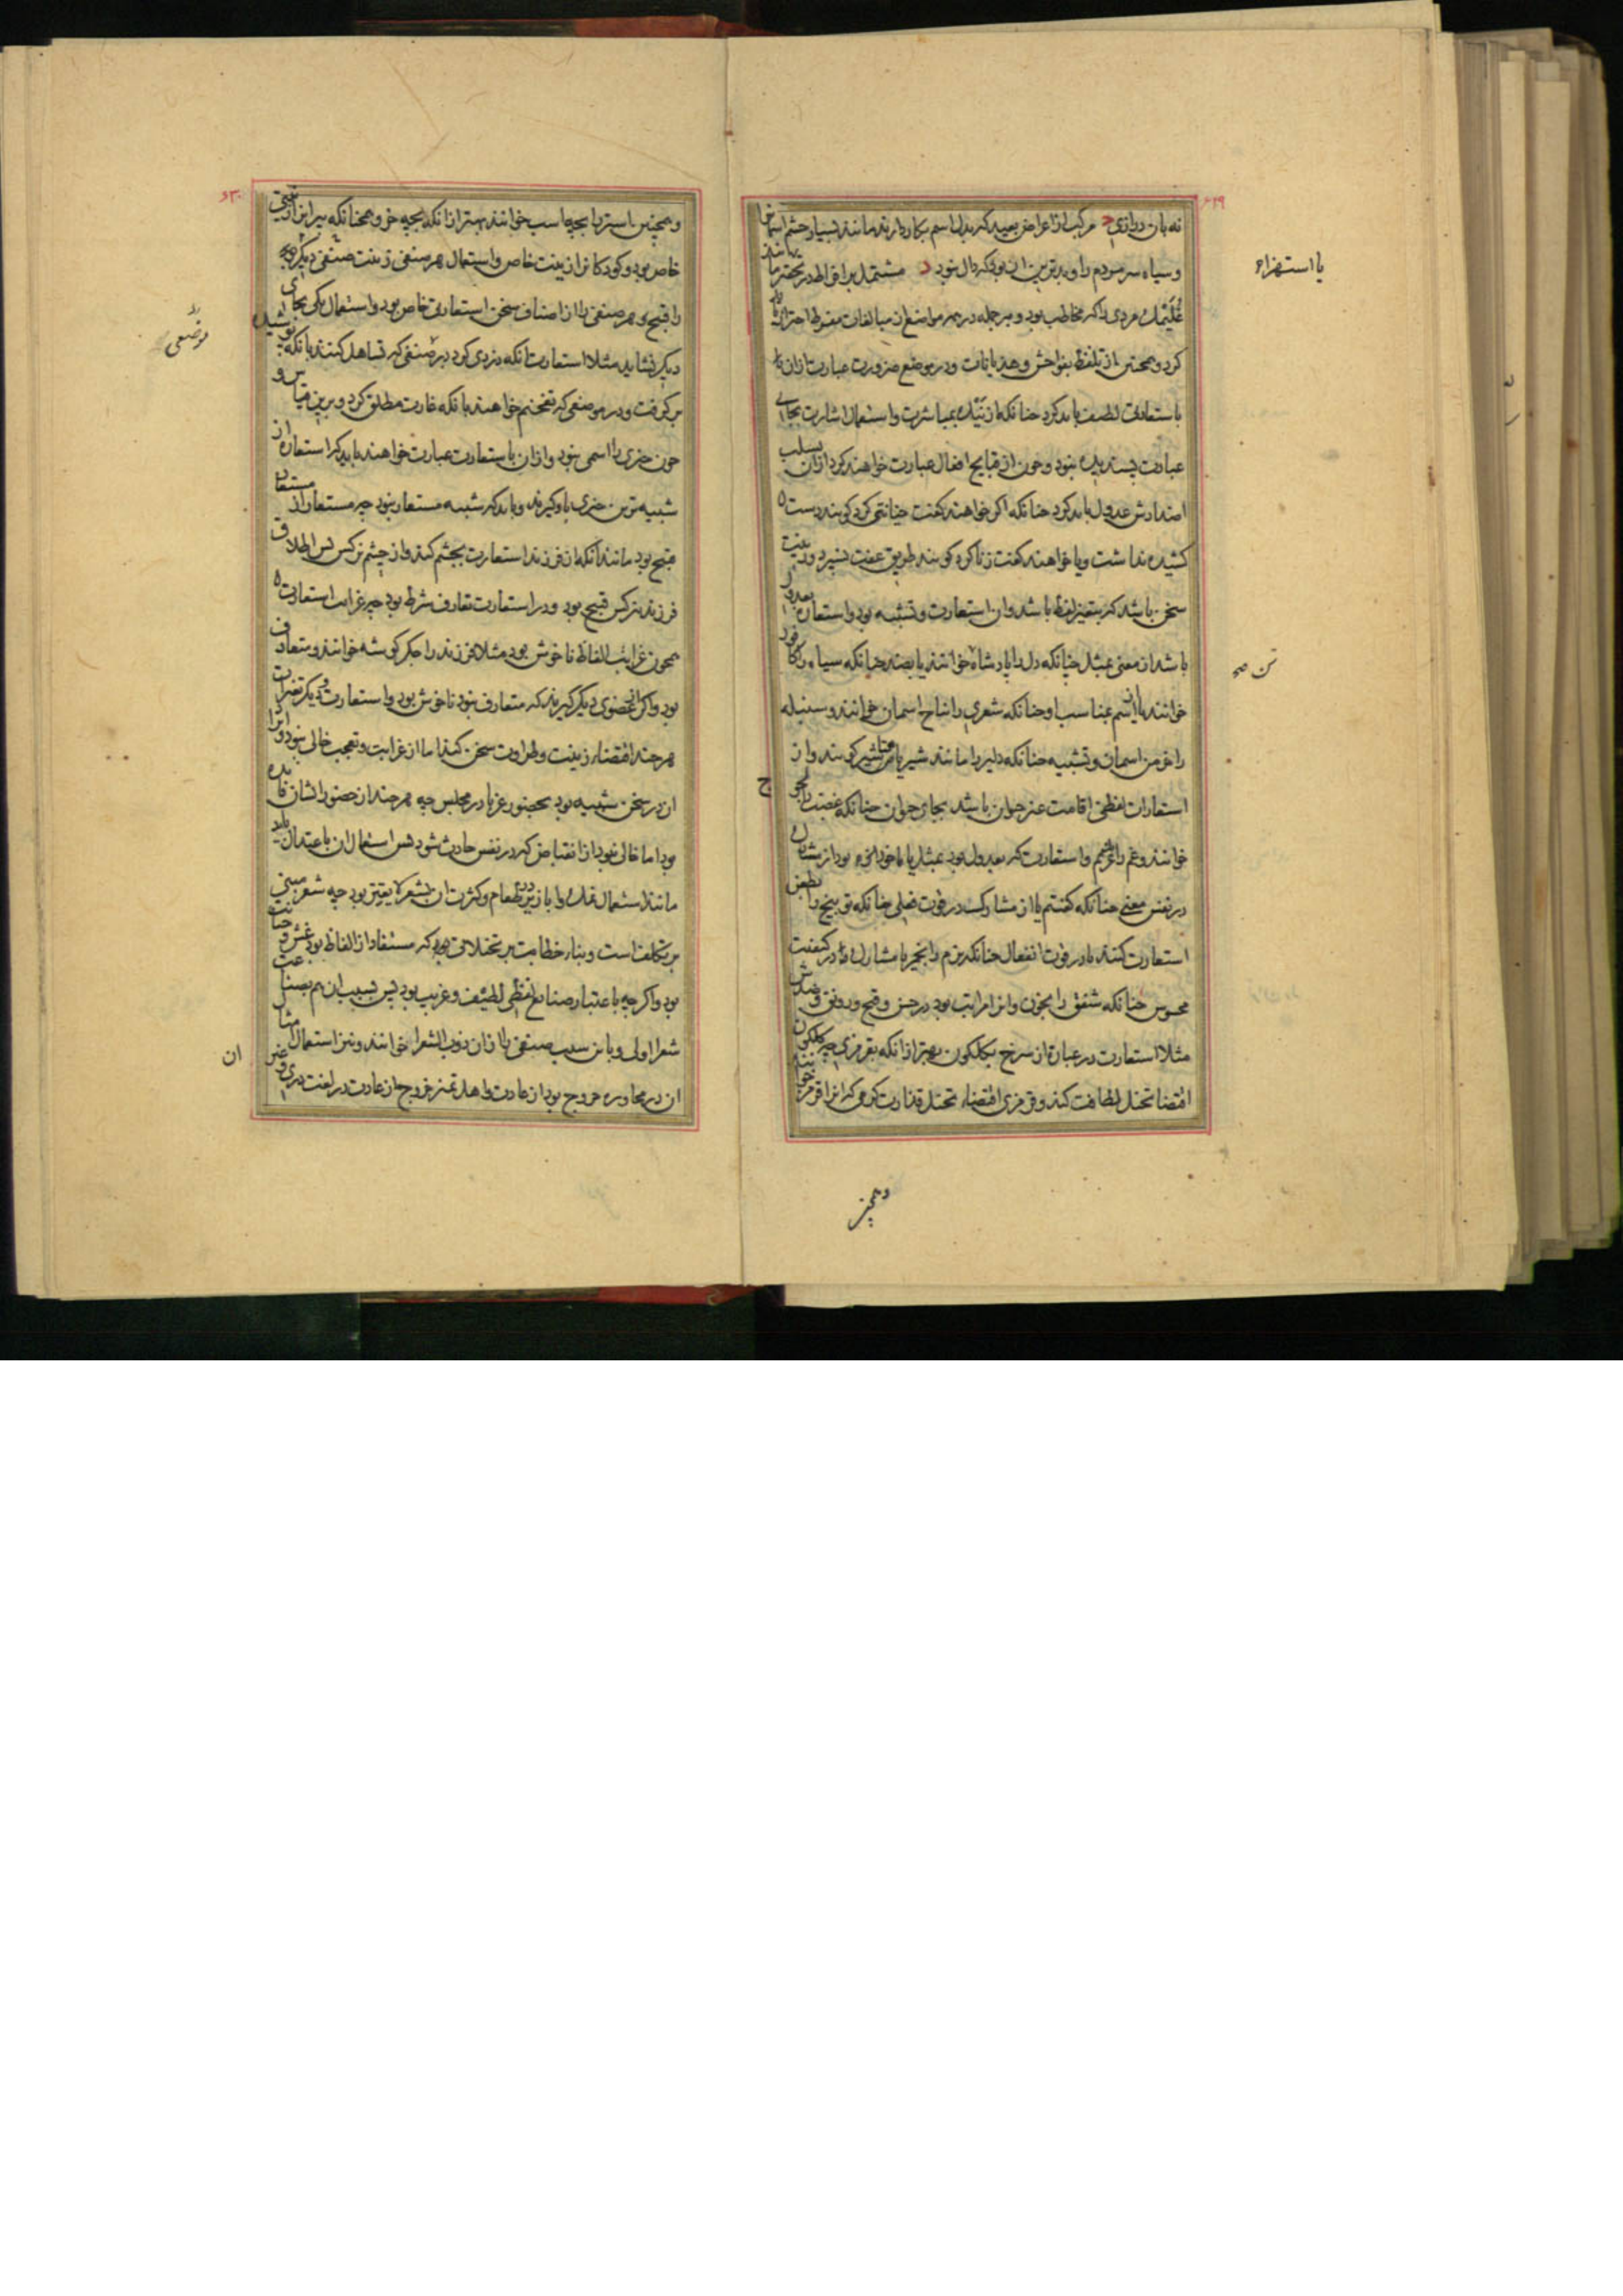 ۶۲۹
نه بان درازی ج مرکب از اعراض بعید که بدل اسم بکار دارند مانند بسیار چشم آسمان را
و سیاه سر مردم را و بدترین آن بود که دال نبود د مشتمل بر افراط در تحقیر مانند
یا استهزاء
غُلَیّمک مردی را که مخاطب بود و بر جمله در همه مواضع از مبالغات مفرط احتراز باید
کرد و همچنین از تلفظ بفواحش و هذیانات و در موضع ضرورت عبارت از آن را
باستعارتی لطیف باید کرد چنانکه از نَیْک بمباشرت و استعمال اشارت بجای
عبارت پسندیده نبود و چون از قبایح افعال عبارت خواهند کرد از آن بسلب
اضدادش عدول باید کرد چنانکه اگر خواهند گفت خیانتی کرد گویند دست
کشیده نداشت و یا خواهند گفت زنا کرد گویند طریق عفت نسپرد و زینت
سخن باشد که بتغییر لفظ باشد و آن استعارت و تشبیه بود و استعاره بعدول
باشد از معنی بمثل چنانکه دل را پادشاه خوانند یا بضد چنانکه سیاه را کافور
خوانند یا باسم مناسب او چنانکه شعری را نباح آسمان خوانند و سنبله
را خرمن آسمان و تشبیه چنانکه دلیر را مانند شیر یا شیر گویند و از
استعارات لفظی اقامت عنز حیوان باشد بجای حیوان چنانکه غضب را
خوانند و غم را و استعارت که بعدول بود بمثل یا ماخوذ بود از مشارک
در نفس معنی چنانکه گفتیم یا از مشارک در قوت فعلی چنانکه توبیخ را بطعن
استعارت کنند یا در قوت انفعال چنانکه نرم را بخمیر یا مشارک او در کیفیت
محسوس چنانکه شفق را بخون و این را مراتب بود در حسن و قبح و رونق و ضدش
مثلا استعارت در عبارة از سرخ بگلگون بهتر از آنکه بقرمزی چه گلگون
اقتضا تخیل لطافت کند و قرمزی اقتضاء تخیل قذارت کرمی که آنرا قرمز خوانند
و همچنین
۶۳۰
و همچنین استر را بچه اسب خوانند بهتر از آنکه بچه خر و همچنانکه پیران را زینتی
خاص بود و کودکان را زینت خاص و استعمال هر صنفی زینت صنفی دیگر
را قبیح و هر صنفی را از اصناف سخن استعارتی خاص بود و استعمال یکی بجای
دیگر نشاید مثلا استعارت آنکه دزدی کرد در صنفی که تساهل کنند بانکه پوشیده
موضعی
برگرفت و در موضعی که تفخیم خواهند بانکه غارت مطلق کرد و برین قیاس و
چون چیزی را اسمی نبود و از آن باستعارت عبارت خواهند باید که استعاره از
شبیه ترین چیزی باو گیرند و باید که شبیه مستعار نبود چه مستعار از مستعار
قبیح بود مانند آنکه از فرزند استعارت بچشم کنند و از چشم نرگس پس اطلاق
فرزند بنرگس قبیح بود و در استعارت تعارف شرط بود چه غرابت استعارت
همچون غرابت الفاظ ناخوش بود مثلا فرزند را جگر گوشه خوانند و متعارف
بود و اگر از عضوی دیگر گیرند که متعارف نبود ناخوش بود و استعارت و دیگر تغییرات
هر چند اقتضاء زینت و طراوت سخن کند اما از غرابت و تعجب خالی نبود و ایراد
آن در سخن شبیه بود بحضور غربا در مجلس چه هر چند از حضور ایشان فایده
بود اما خالی نبود از انقباض که در نفس حادث شود پس استعمال آن باعتدال باید
مانند استعمال نمک و ابازیر در طعام و کثرت آن بشعر لایقتر بود چه شعر مبنی
بر تکلف است و بناء خطابت بر تخیلاتی بود که مستفاد از الفاظ بود غش و خیانت
بود و اگر چه باعتبار صناعت لفظی لطیف و غریب بود پس بسبب آن هم بصناعت
شعرا اولی و باین سبب صنفی را از آن ذوب الشعرا خوانند و نیز استعمال امثال
آن در محاوره خروج بود از عادت و اهل تمیز خروج از عادت در لغت دری و غیر
ان